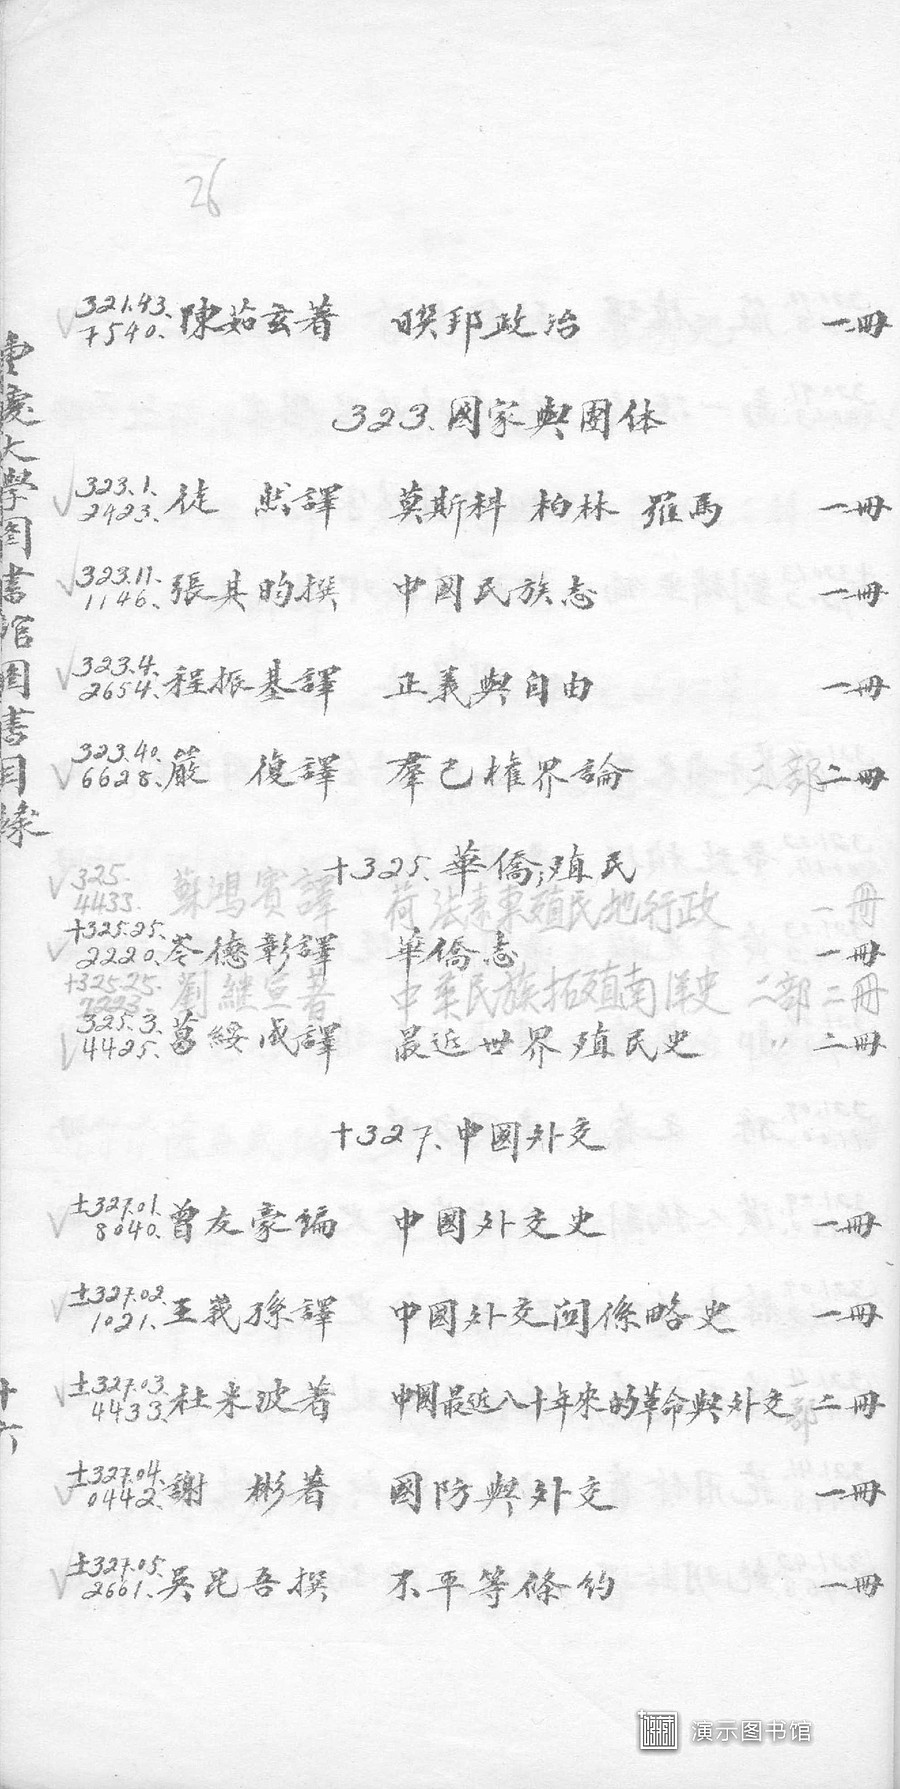 26
321.43. 7540. 陳茹玄著 聯邦政治 一冊
323. 國家與團体
323.1. 2423. 徒 然譯 莫斯科 柏林 羅馬 一冊
323.11. 1146. 張其昀撰 中國民族志 一冊
323.4. 2654. 程振基譯 正義與自由 一冊
323.40. 6628. 嚴 復譯 羣己權界論 二部 二冊
+325. 華僑,殖民
325. 4433. 蘇鴻賓譯 荷法遠東殖民地行政 一冊
+325.25. 2220. 岑德彰譯 華僑志 一冊
+325.25. 7223. 劉継宣著 中華民族拓殖南洋史 二部 二冊
325.3. 4425. 葛綏成譯 最近世界殖民史 〃 二冊
+327. 中國外交
±327.01. 8040. 曾友豪編 中國外交史 一冊
±327.02. 1021. 王義孫譯 中國外交関係略史 一冊
±327.03. 4433. 杜米波著 中國最近八十年來的革命與外交 二部 二冊
±327.04. 0442. 謝 彬著 國防與外交 一冊
±327.05. 2661. 吳昆吾撰 不平等條約 一冊
重慶大學图書館圖書目錄
十六
演示图书馆